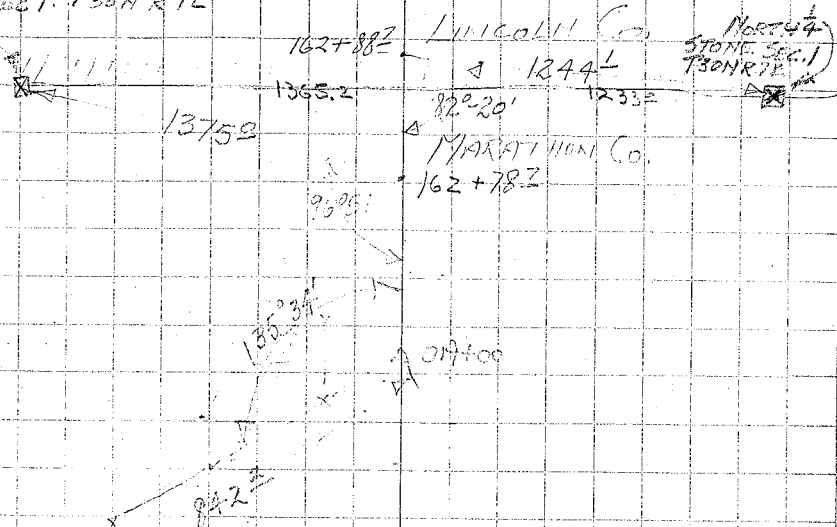 T30N R7E
162+88⁷
LINCOLN CO.
NORTH ¼
STONE SEC. 1
T30N R7E
1244¹
1365.2
82°-20'
1233⁰
1375⁰
MARATHON CO.
162+78⁷
135°34'
0M+00
842²